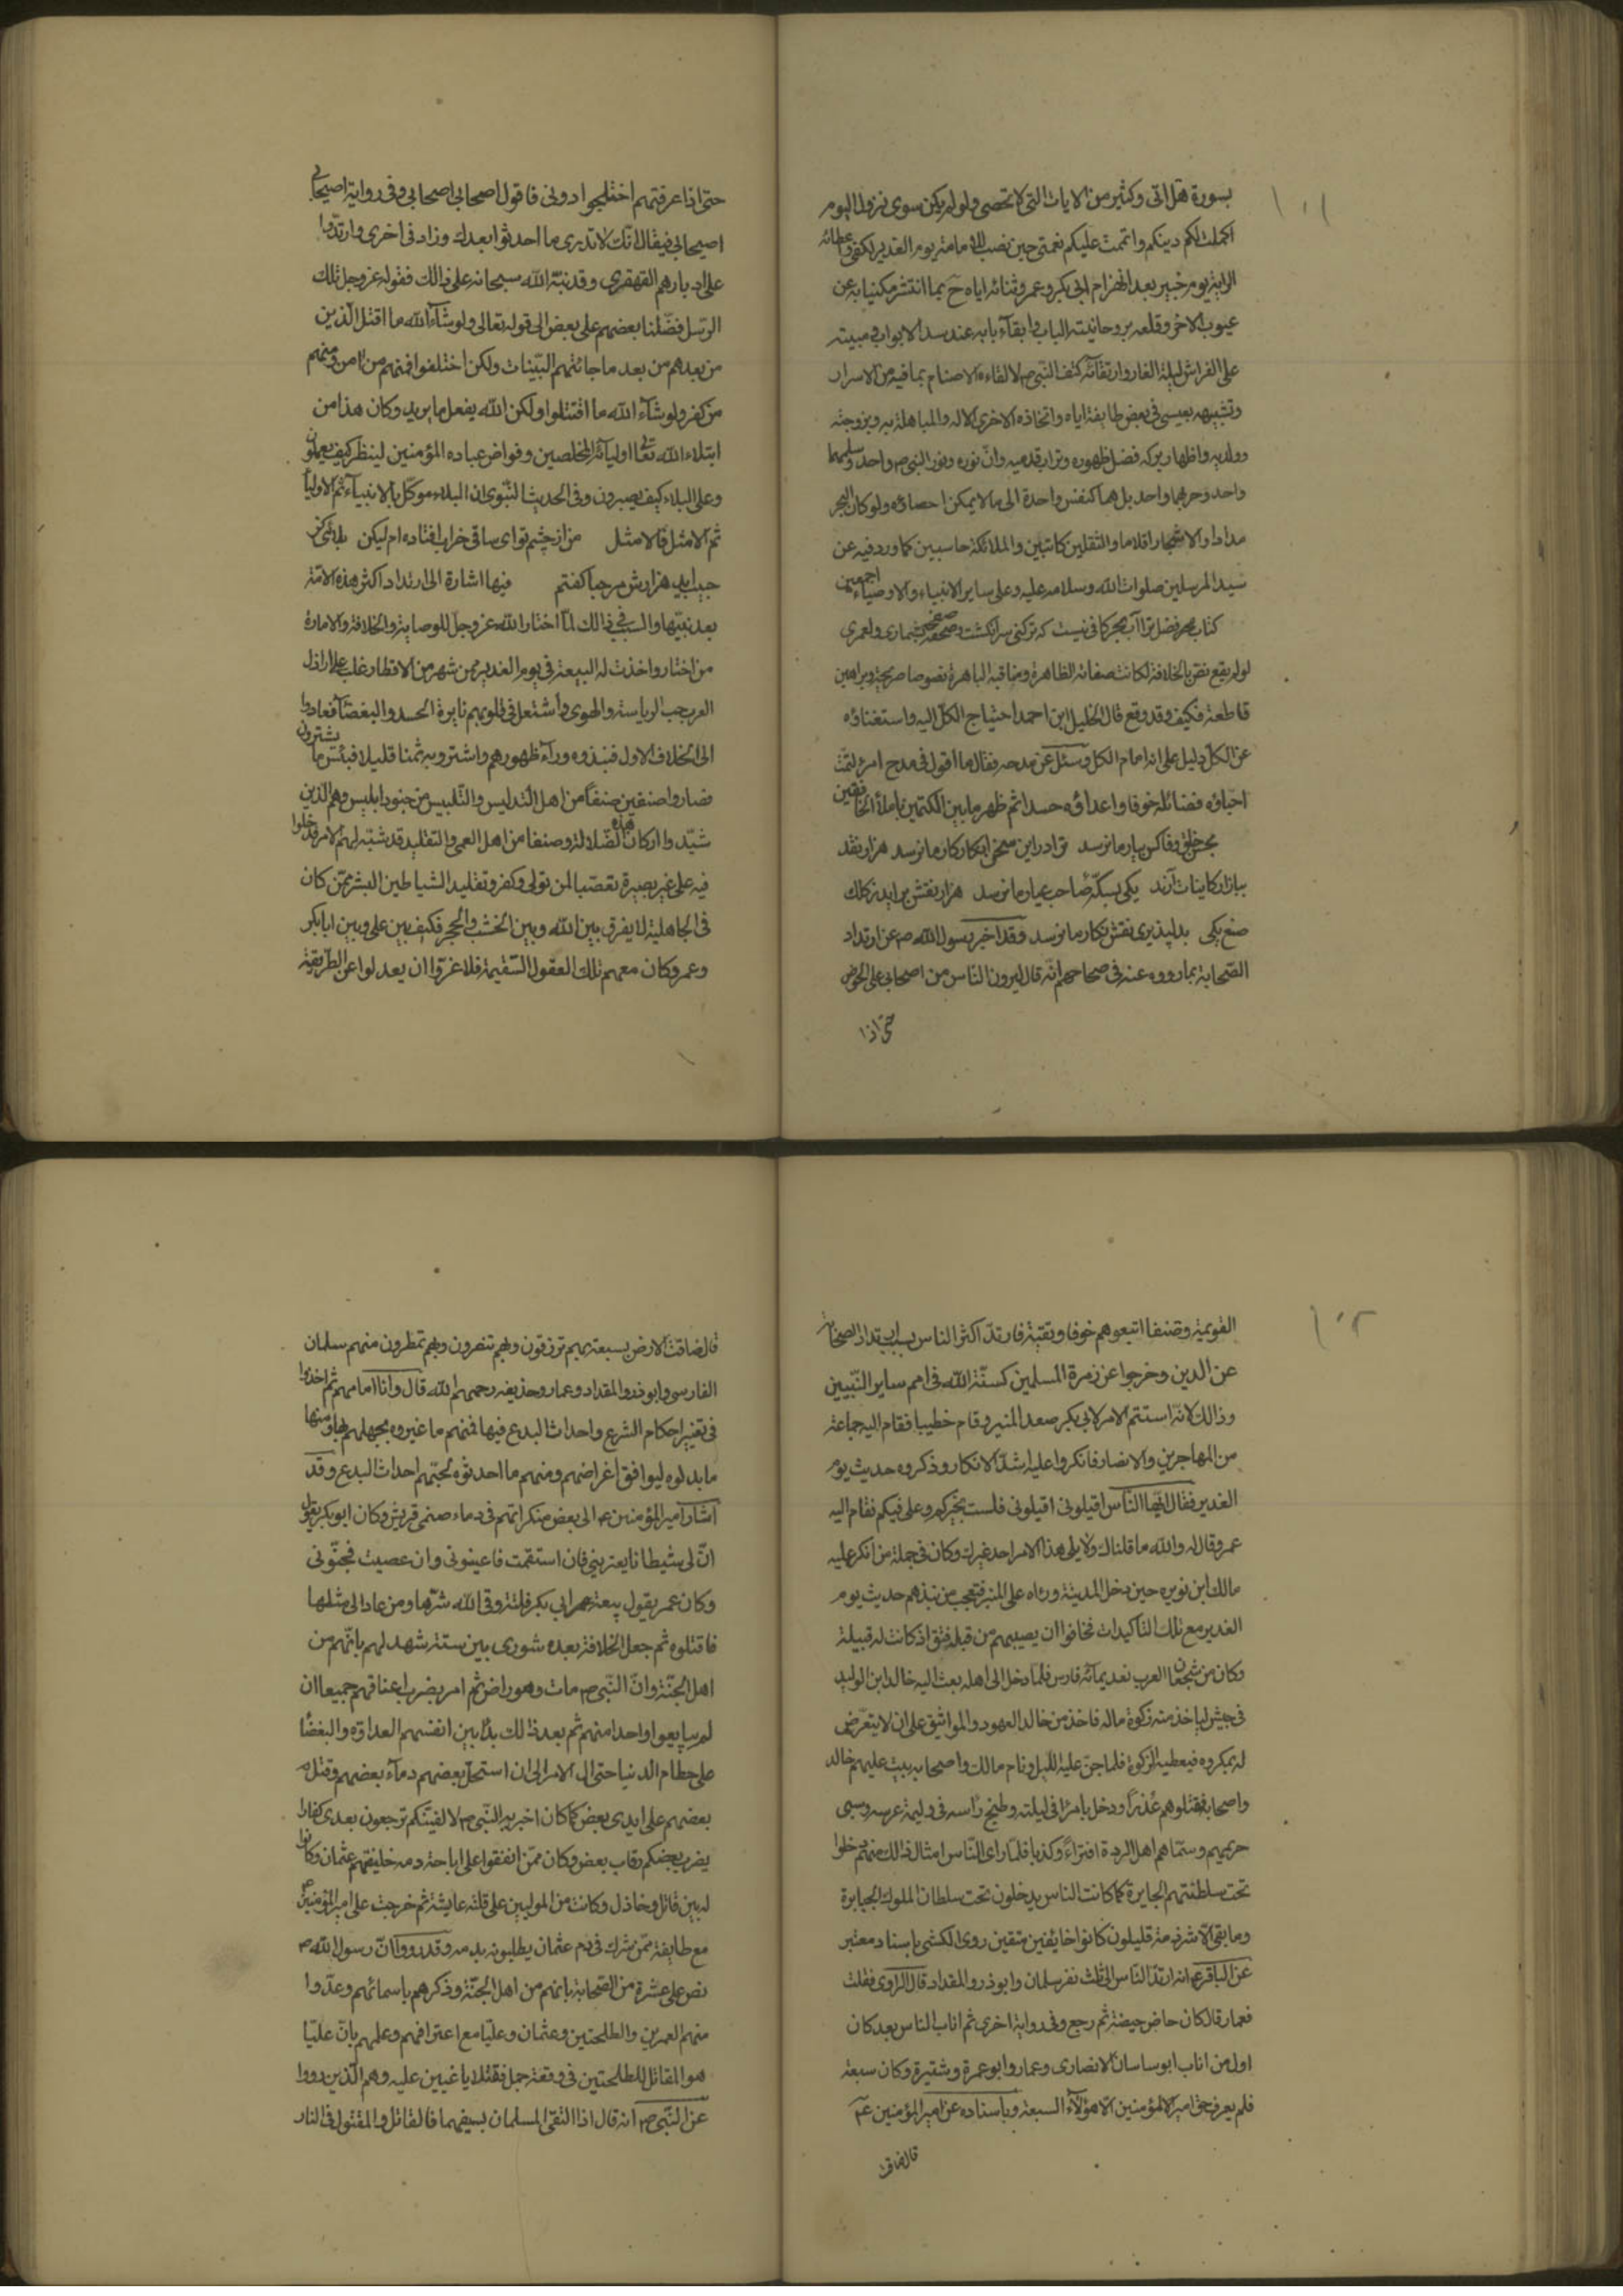 ١٠١
بسورة هل اتى وكثير من الايات التى لا تحصى ولو لم يكن سوى نزول اليوم
اكملت لكم دينكم واتممت عليكم نعمتى حين نصب للامامة يوم الغدير لكفى واعطائه
الراية يوم خيبر بعد انهزام ابى بكر وعمر وثنائه اياه ح بما انتشر مكنيا به عن
عيوب الاخر وقلعه بروحانيته الباب وابقاء بابه عند سد الابواب ومبيته
على الفراش ليلة الغار وارتقائه كتف النبى ص لالقاء الاصنام بما فيه من الاسرار
وتشبيهه بعيسى فى بعض طائفة اياه واتخاذه الاخرى الاله والمباهلة به وبزوجته
وولديه واظهار بركة فضل ظهوره وتراب قدميه وان نوره ونور النبى ص واحد وسلمهما
واحد وحربهما واحد بل هما كنفس واحدة الى ما لا يمكن احصاؤه ولو كان البحر
مدادا والاشجار اقلاما والثقلين كاتبين والملائكة حاسبين كما ورد فيه عن
سيد المرسلين صلوات الله وسلامه عليه وعلى ساير الانبياء والاوصياء اجمعين
كتاب فضل ترا آب بحر كافى نيست كه تر كنى سر انكشت وصفحه بشمارى ولعمرى
لو لم يقع نص بالخلافة لكانت صفاته الظاهرة ومناقبه الباهرة نصوصا صريحة وبراهين
قاطعة فكيف وقد وقع قال الخليل ابن احمد احتياج الكل اليه واستغناؤه
عن الكل دليل على انه امام الكل وسئل عن مدحه فقال ما اقول فى مدح امرء كتمت
احباؤه فضائله خوفا واعداؤه حسدا ثم ظهر ما بين الكتمين ما ملأ الخافقين
بحسن خلق وفا كس بيار ما نرسد ترا در اين سخن انكار كار ما نرسد هزار نقد
ببازار كاينات آرند يكى بسكه صاحب عيار ما نرسد هزار نقش برايد ز كلك
صنع يكى بدلپذيرى نقش نكار ما نرسد وقد اخبر رسول الله ص عن ارتداد
الصحابة بما رووه عنه فى صحاحهم انه قال ليردن الناس من اصحابى على الحوض
حتى اذا
حتى اذا عرفتهم اختلجوا دونى فاقول اصحابى اصحابى وفى رواية اصيحابى
اصيحابى فيقال انك لا تدرى ما احدثوا بعدك وزاد فى اخرى وارتدوا
على ادبارهم القهقرى وقد نبه الله سبحانه على ذالك فقوله عز وجل تلك
الرسل فضلنا بعضهم على بعض الى قوله تعالى ولو شاء الله ما اقتتل الذين
من بعدهم من بعد ما جائتهم البينات ولكن اختلفوا فمنهم من امن ومنهم
من كفر ولو شاء الله ما اقتتلوا ولكن الله يفعل ما يريد وكان هذا من
ابتلاء الله تعالى اوليائه المخلصين وخواص عباده المؤمنين لينظر كيف يعملون
وعلى البلاء كيف يصبرون وفى الحديث النبوى ان البلاء موكل بالانبياء ثم الاولياء
ثم الامثل فالامثل من از چشم تو اى ساقى خراب افتاده ام ليكن بلائى كز
حبيب ايد هزارش مرحبا كفتم فيها اشارة الى ارتداد اكثر هذه الامة
بعد نبيها والسبب فى ذالك لما اختار الله عز وجل للوصاية والخلافة والامارة
من اختار واخذت له البيعة فى يوم الغدير ممن شهر من الاقطار غلب على اراذل
العرب حب الرياسة والهوى واشتعل فى قلوبهم نايرة الحسد والبغضاء فعادوا
الى الخلاف الاول فنبذوه وراء ظهورهم واشتروا به ثمنا قليلا فبئس ما يشترون
فصاروا صنفين صنفا من اهل التدليس والتلبيس من جنود ابليس وهم الذين
شيدوا اركان هذه الضلالة وصنفا من اهل العمى والتقليد قد شبه لهم الامر فدخلوا
فيه على غير بصيرة تعصبا لمن تولى وكفر وتقليد الشياطين البشر ممن كان
فى الجاهلية لا يفرق بين الله وبين الخشب والحجر فكيف بين على وبين ابا بكر
وعمر وكان معهم تلك العقول السقيمة فلا غرو ان يعدلوا عن الطريقة
١٠٢
القويمة وصنفا اتبعوهم خوفا وتقية فارتد اكثر الناس بسبب ارتداد الصحابة
عن الدين وخرجوا عن زمرة المسلمين كسنة الله فى امم ساير النبيين
وذالك لانه استتم الامر لابى بكر صعد المنبر وقام خطيبا فقام اليه جماعة
من المهاجرين والانصار فانكروا عليه اشد الانكار وذكروه حديث يوم
الغدير فقال ايها الناس اقيلونى اقيلونى فلست بخيركم وعلى فيكم فقام اليه
عمر وقال له والله ما قلناك ولا يلى هذا الامر احد غيرك وكان فى جملة من انكر عليه
مالك ابن نويره حين دخل المدينة وراه على المنبر فتعجب من نبذهم حديث يوم
الغدير مع تلك التاكيدات فخافوا ان يصيبهم من قبله فتق اذ كانت له قبيلة
وكان من شجعان العرب تعد بمائة فارس فلما دخل الى اهله بعث اليه خالد ابن الوليد
فى جيش لياخذ منه زكوة ماله فاخذ من خالد العهود والمواثيق على ان لا يتعرض
له بمكروه فيعطيه الزكوة فلما جن عليه الليل ونام مالك واصحابه بيت عليهم خالد
واصحابه فقتلوهم غدرا ودخل بامرأته فى ليلته وطبخ رأسه فى وليمة عرسه وسبى
حريمهم وسماهم اهل الردة افتراء وكذبا فلما راى الناس امثال ذالك منهم دخلوا
تحت سلطنتهم الجايرة كما كانت الناس يدخلون تحت سلطان الملوك الجبابرة
وما بقى الا شرذمة قليلون كانوا خائفين متقين روى الكشى باسناد معتبر
عن الباقر ع انه ارتد الناس الا ثلث نفر سلمان وابو ذر والمقداد قال الراوى فقلت
فعمار قال كان حاض حيضة ثم رجع وفى رواية اخرى ثم اناب الناس بعد كان
اول من اناب ابو ساسان الانصارى وعمار وابو عمرة وشقيرة وكان سبعة
فلم يعرف حق امير المؤمنين الا هؤلاء السبعة وباسناده عن امير المؤمنين ع
قال ضاقت
قال ضاقت الارض بسبعة بهم ترزقون وبهم تنصرون وبهم تمطرون منهم سلمان
الفارسى وابو ذر والمقداد وعمار وحذيفه رحمهم الله قال وانا امامهم ثم اخذوا
فى تغيير احكام الشرع واحداث البدع فيها فمنهم ما غيروه بجهلهم بها ومنها
ما بدلوه ليوافق اغراضهم ومنهم ما احدثوه لحبهم احداث البدع وقد
اشار امير المؤمنين ع الى بعض منكراتهم فى دعاء صنمى قريش وكان ابو بكر يقول
ان لى شيطانا يعترينى فان استقمت فاعينونى وان عصيت فجنبونى
وكان عمر يقول بيعة ابى بكر فلتة وقى الله شرها ومن عاد الى مثلها
فاقتلوه ثم جعل الخلافة بعده شورى بين ستة شهد لهم بانهم من
اهل الجنة وان النبى ص مات وهو راض ثم امر بضرب اعناقهم جميعا ان
لم يبايعوا واحدا منهم ثم بعد ذالك بدا بين انفسهم العداوة والبغضاء
على حطام الدنيا حتى ال الامر الى ان استحل بعضهم دماء بعضهم وقتل
بعضهم على ايدى بعض كما كان اخبر به النبى ص لالفينكم ترجعون بعدى كفارا
يضرب بعضكم رقاب بعض وكان ممن اتفقوا على اباحة دمه خليفتهم عثمان وكانوا
له بين قاتل وخاذل وكانت من المولبين على قتله عايشة ثم خرجت على امير المؤمنين ع
مع طايفة ممن شرك فى دم عثمان يطلبونه بدمه وقد رووا ان رسول الله ص
نص على عشرة من الصحابة بانهم من اهل الجنة وذكرهم باسمائهم وعدوا
منهم العمرين والطلحتين وعثمان وعليا مع اعترافهم وعلمهم بان عليا
هو المقاتل للطلحتين فى وقعة جمل فقتلا باغيين عليه وهم الذين رووا
عن النبى ص انه قال اذا التقى المسلمان بسيفهما فالقاتل والمقتول فى النار